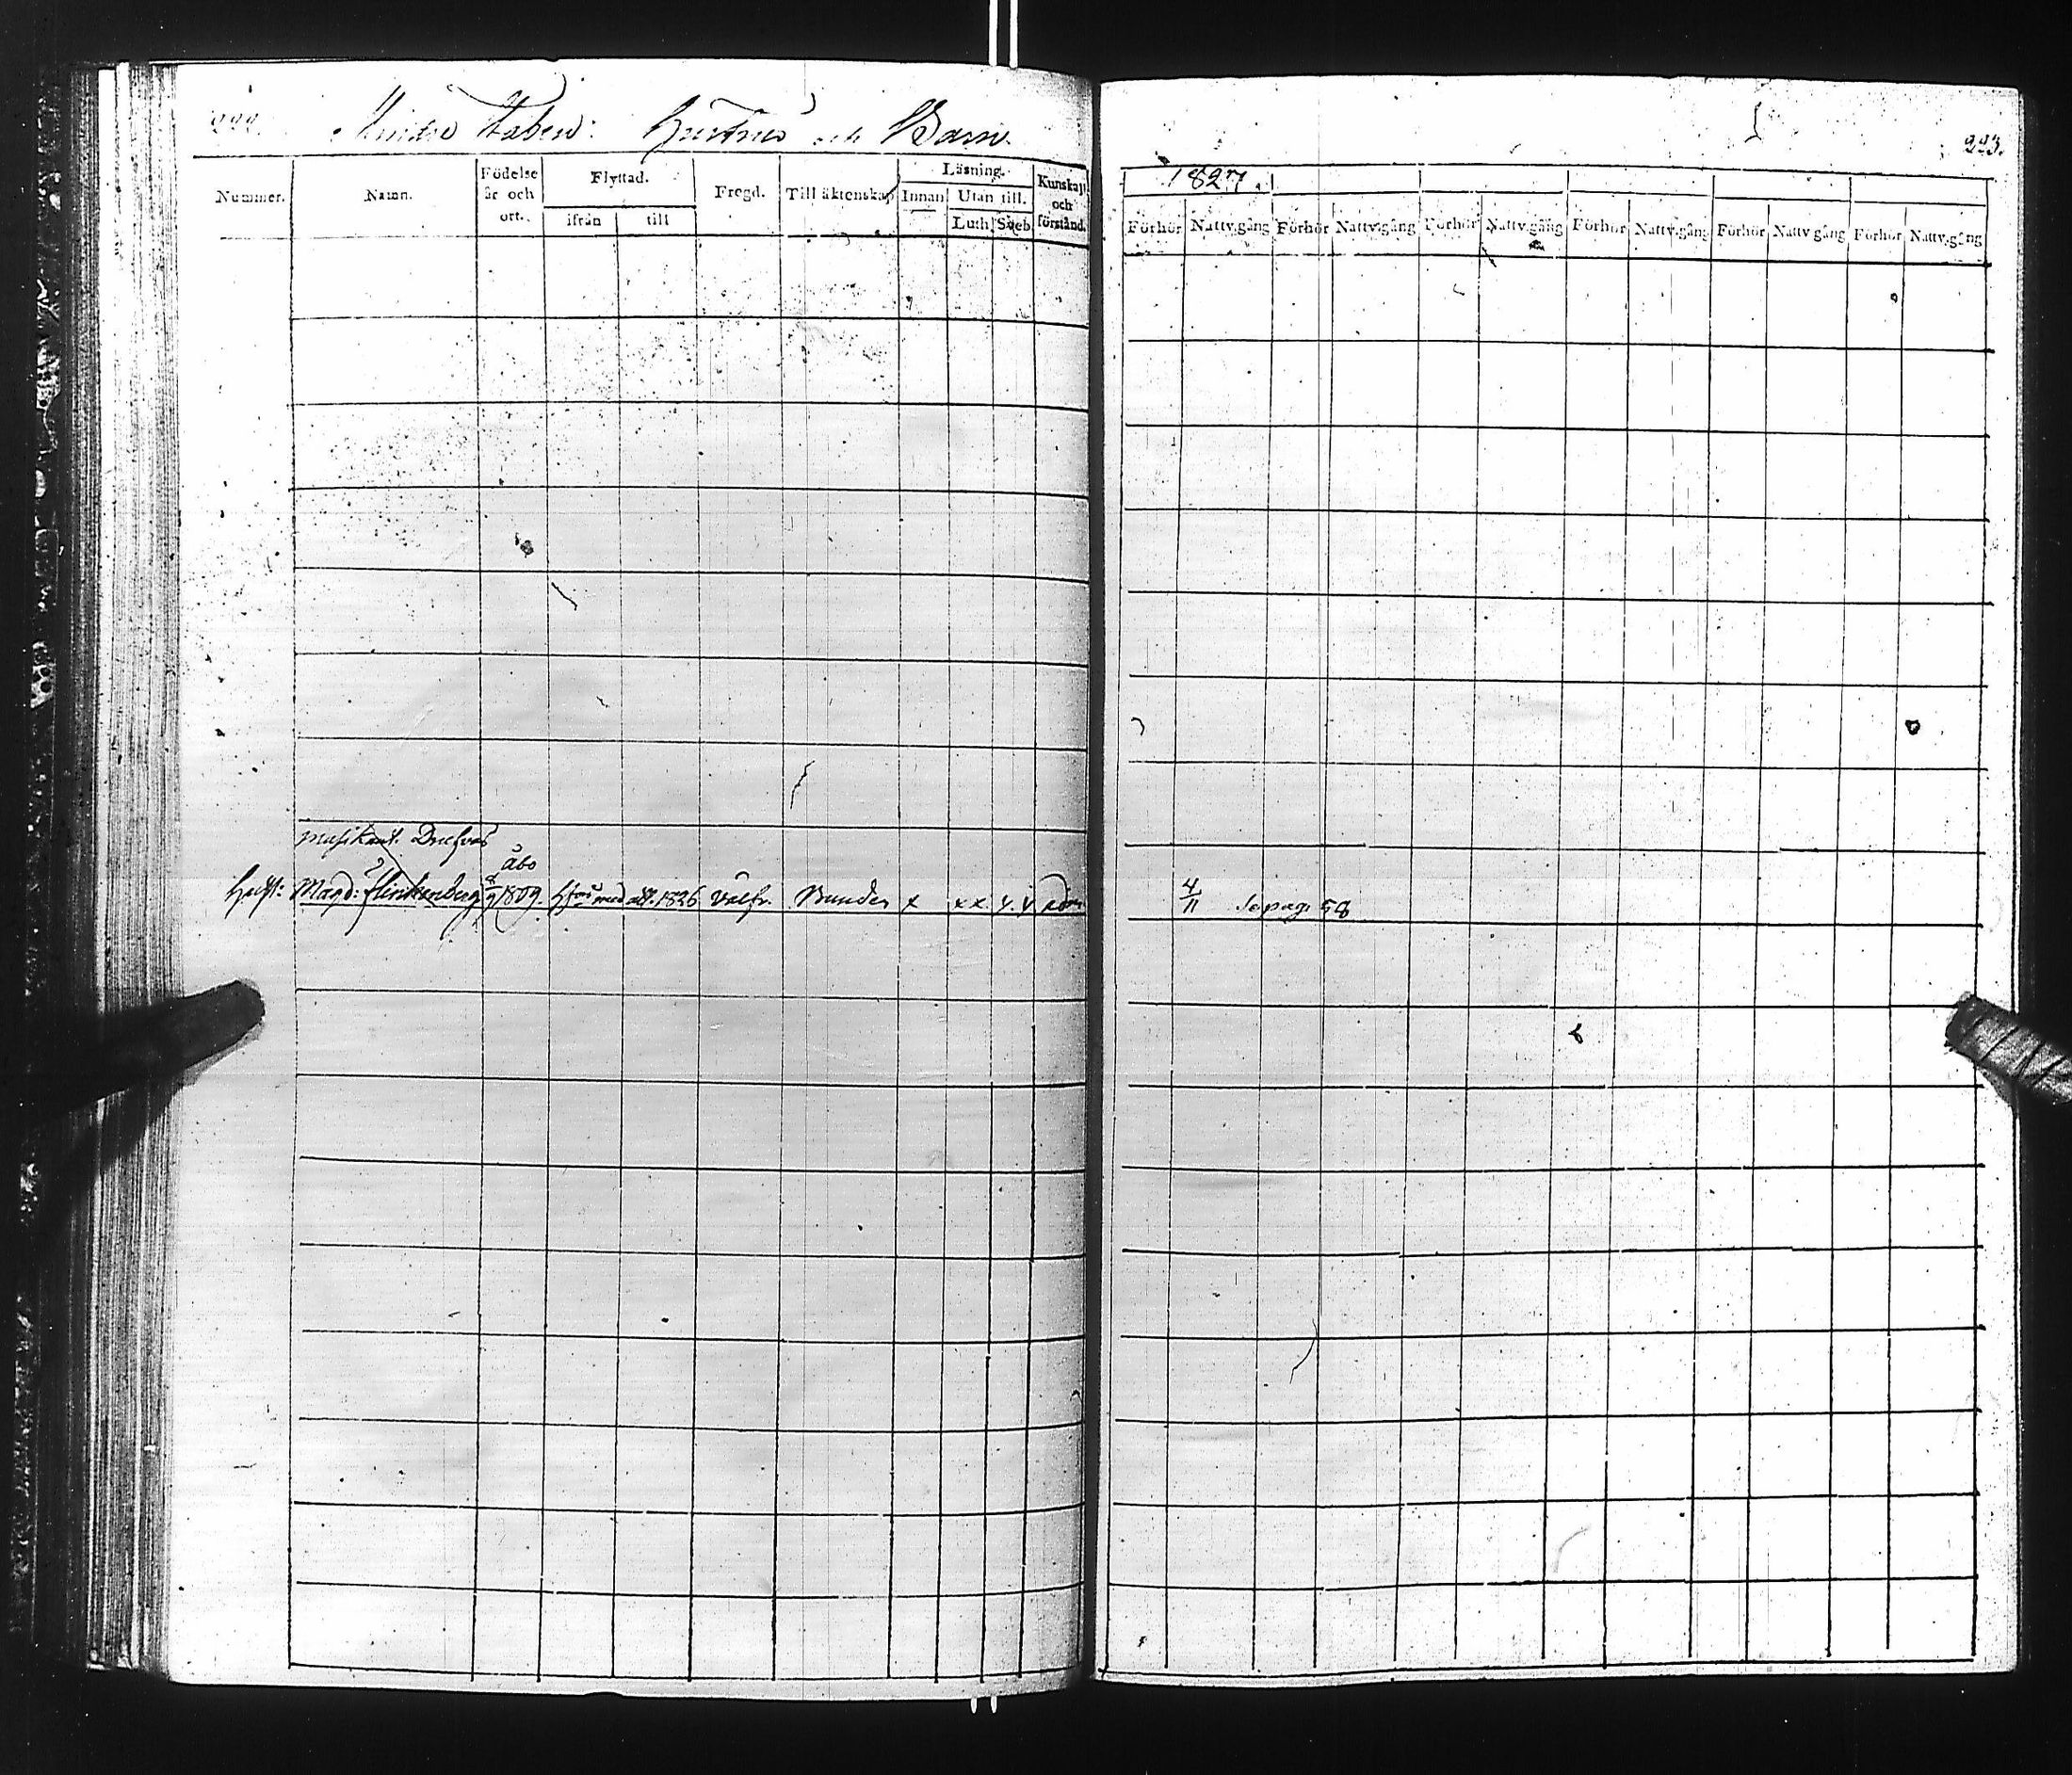 222.
Mindre Staben: Hustrur och Barn.
Nummer. Namn. Födelse år och ort. Flyttad. ifrån till Fregd. Till äktenskap Läsning. Innan Utan till. Luth. Sveb. Kunskap och förstånd.
musikant.
Åbo
Hust: Magd: Flinkenberg 1809. med att. 1826 välfr. Bunden x x x
223.
1827.
Förhör Nattv.gång Förhör Nattv.gång Förhör Nattv.gång Förhör Nattv.gång Förhör Nattv.gång Förhör Nattv.gång
4/11 Se pag. 58